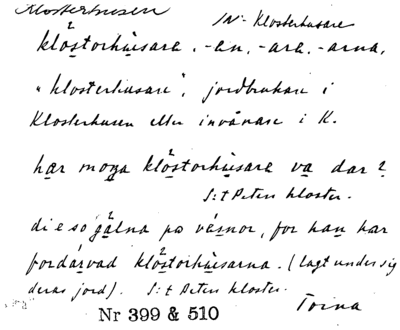 Klosterhusen
IN- Klosterhusare
klöstorhùsara, -an, -ara, -arna,
"klosterhusare", jordbrukare i
Klosterhusen eller invånare i K.
har moga klöstorhùsara va dar?
S:t Peters kloster.
di e so gàlna po vásnor, for han har
fordárvad klöstorhùsarna. (lagt under sig
deras jord). S:t Peters kloster.
Torna
Nr 399 & 510